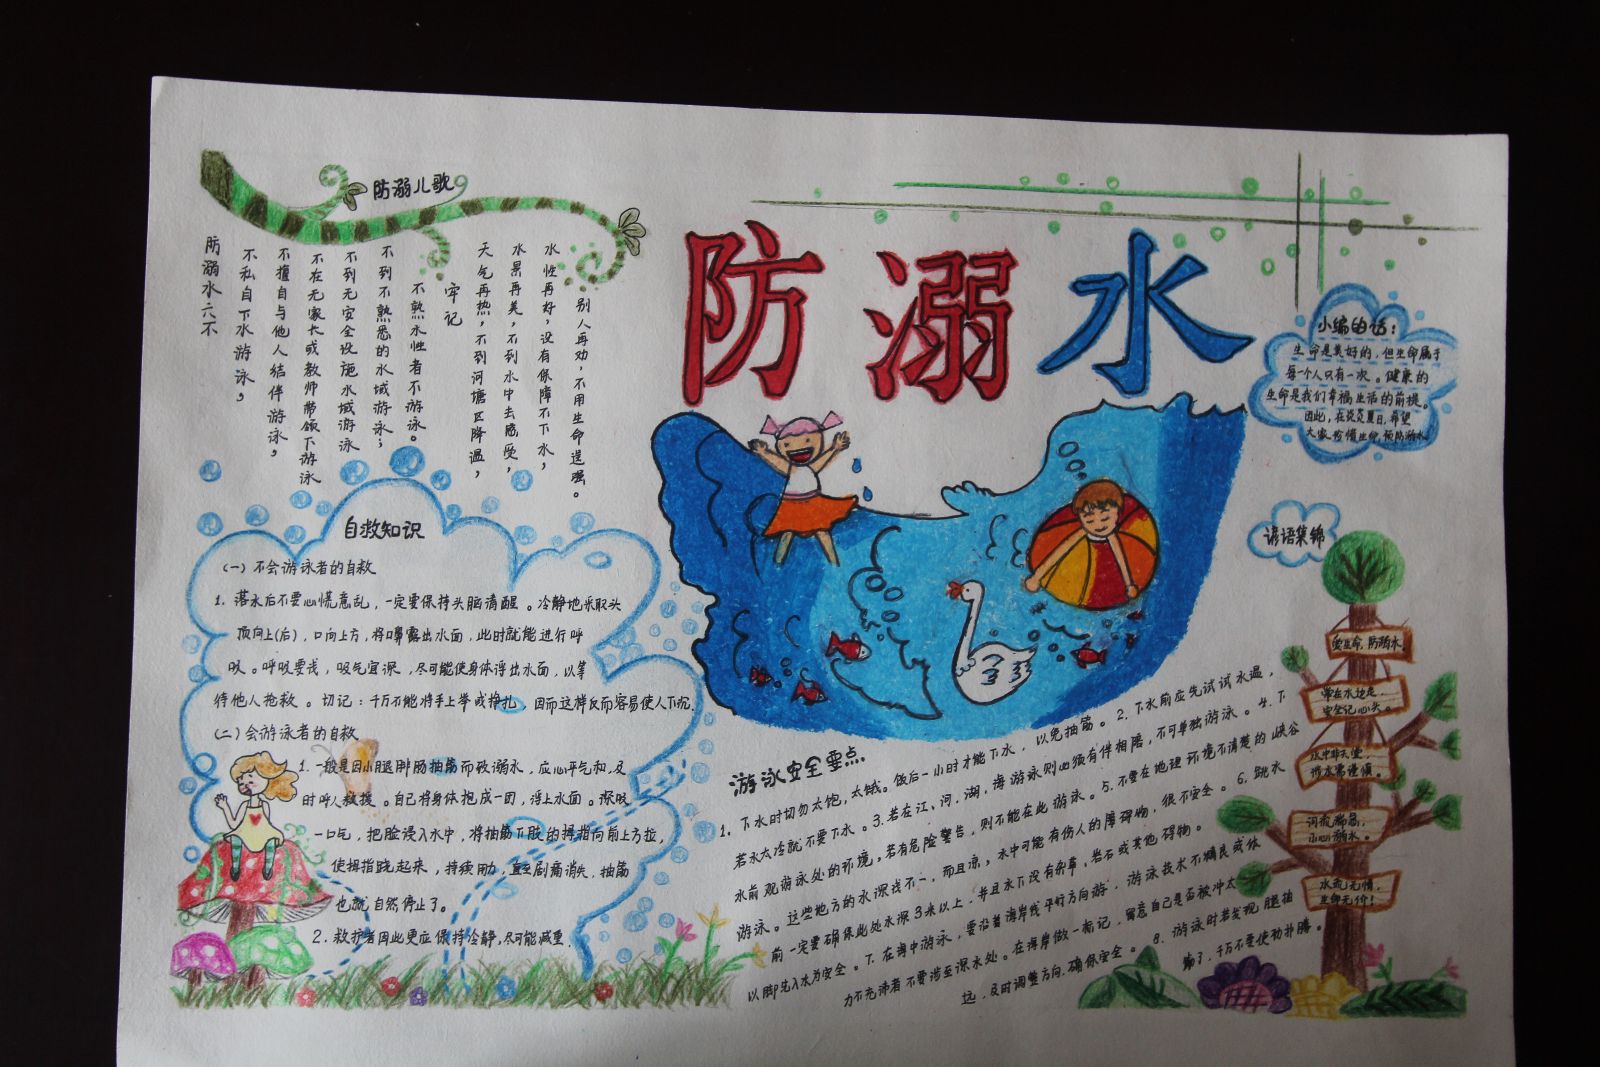 防溺水
防溺儿歌
防溺水六不
不私自下水游泳，
不擅自与他人结伴游泳，
不在无家长或教师带领下游泳
不到无安全设施水域游泳
不到不熟悉的水域游泳；
不熟水性者不游泳。
牢记
天气再热，不到河塘区降温，
水景再美，不到水中去感受，
水性再好，没有保障不下水，
别人再劝，不用生命逞强。
自救知识
（一）不会游泳者的自救
1. 落水后不要心慌意乱，一定要保持头脑清醒。冷静地采取头
顶向上(后)，口向上方，将嘴露出水面，此时就能进行呼
吸。呼吸要浅，吸气宜深，尽可能使身体浮出水面，以等
待他人抢救。切记：千万不能将手上举或挣扎，因而这样反而容易使人下沉.
（二）会游泳者的自救
1. 一般是因小腿腓肠抽筋而致溺水，应心平气和，及
时呼人救援。自己将身体抱成一团，浮上水面。深吸
一口气，把脸浸入水中，将抽筋下肢的拇指向前上方拉，
使拇指跷起来，持续用力，直至剧痛消失，抽筋
也就自然停止了。
2. 救护者因此更应保持冷静，尽可能减重.
游泳安全要点
1、下水时切勿太饱，太饿。饭后一小时才能下水，以免抽筋。2. 下水前应先试试水温，
若水太冷就不要下水。3. 若在江、河、湖、海游泳则必须有伴相陪，不可单独游泳。4. 下
水前观游泳处的环境。若有危险警告，则不能在此游泳。5. 不要在地理环境不清楚的峡谷
游泳。这些地方的水深浅不一，而且凉，水中可能有伤人的障碍物，很不安全。6. 跳水
前一定要确保此处水深3米以上，并且水下没有杂草、岩石或其他碍物。
以脚先入水为安全。7. 在海中游泳，要沿着海岸线平行方向游，游泳技术不精良或体
力不充沛者不要涉至深水处。在海岸做一标记，留意自己是否被冲太
远，及时调整方向，确保安全。8. 游泳时若发现腿抽
筋了，千万不要使劲扑腾。
小编的话：
生命是美好的，但生命属于
每一个人只有一次。健康的
生命是我们幸福生活的前提。
因此，在炎炎夏日，希望
大家珍惜生命，预防溺水
谚语集锦
爱生命，防溺水.
常在水边走，
安全记心头。
水中非天堂，
涉水需谨慎。
河流湍急，
小心溺水。
水流无情，
生命无价！